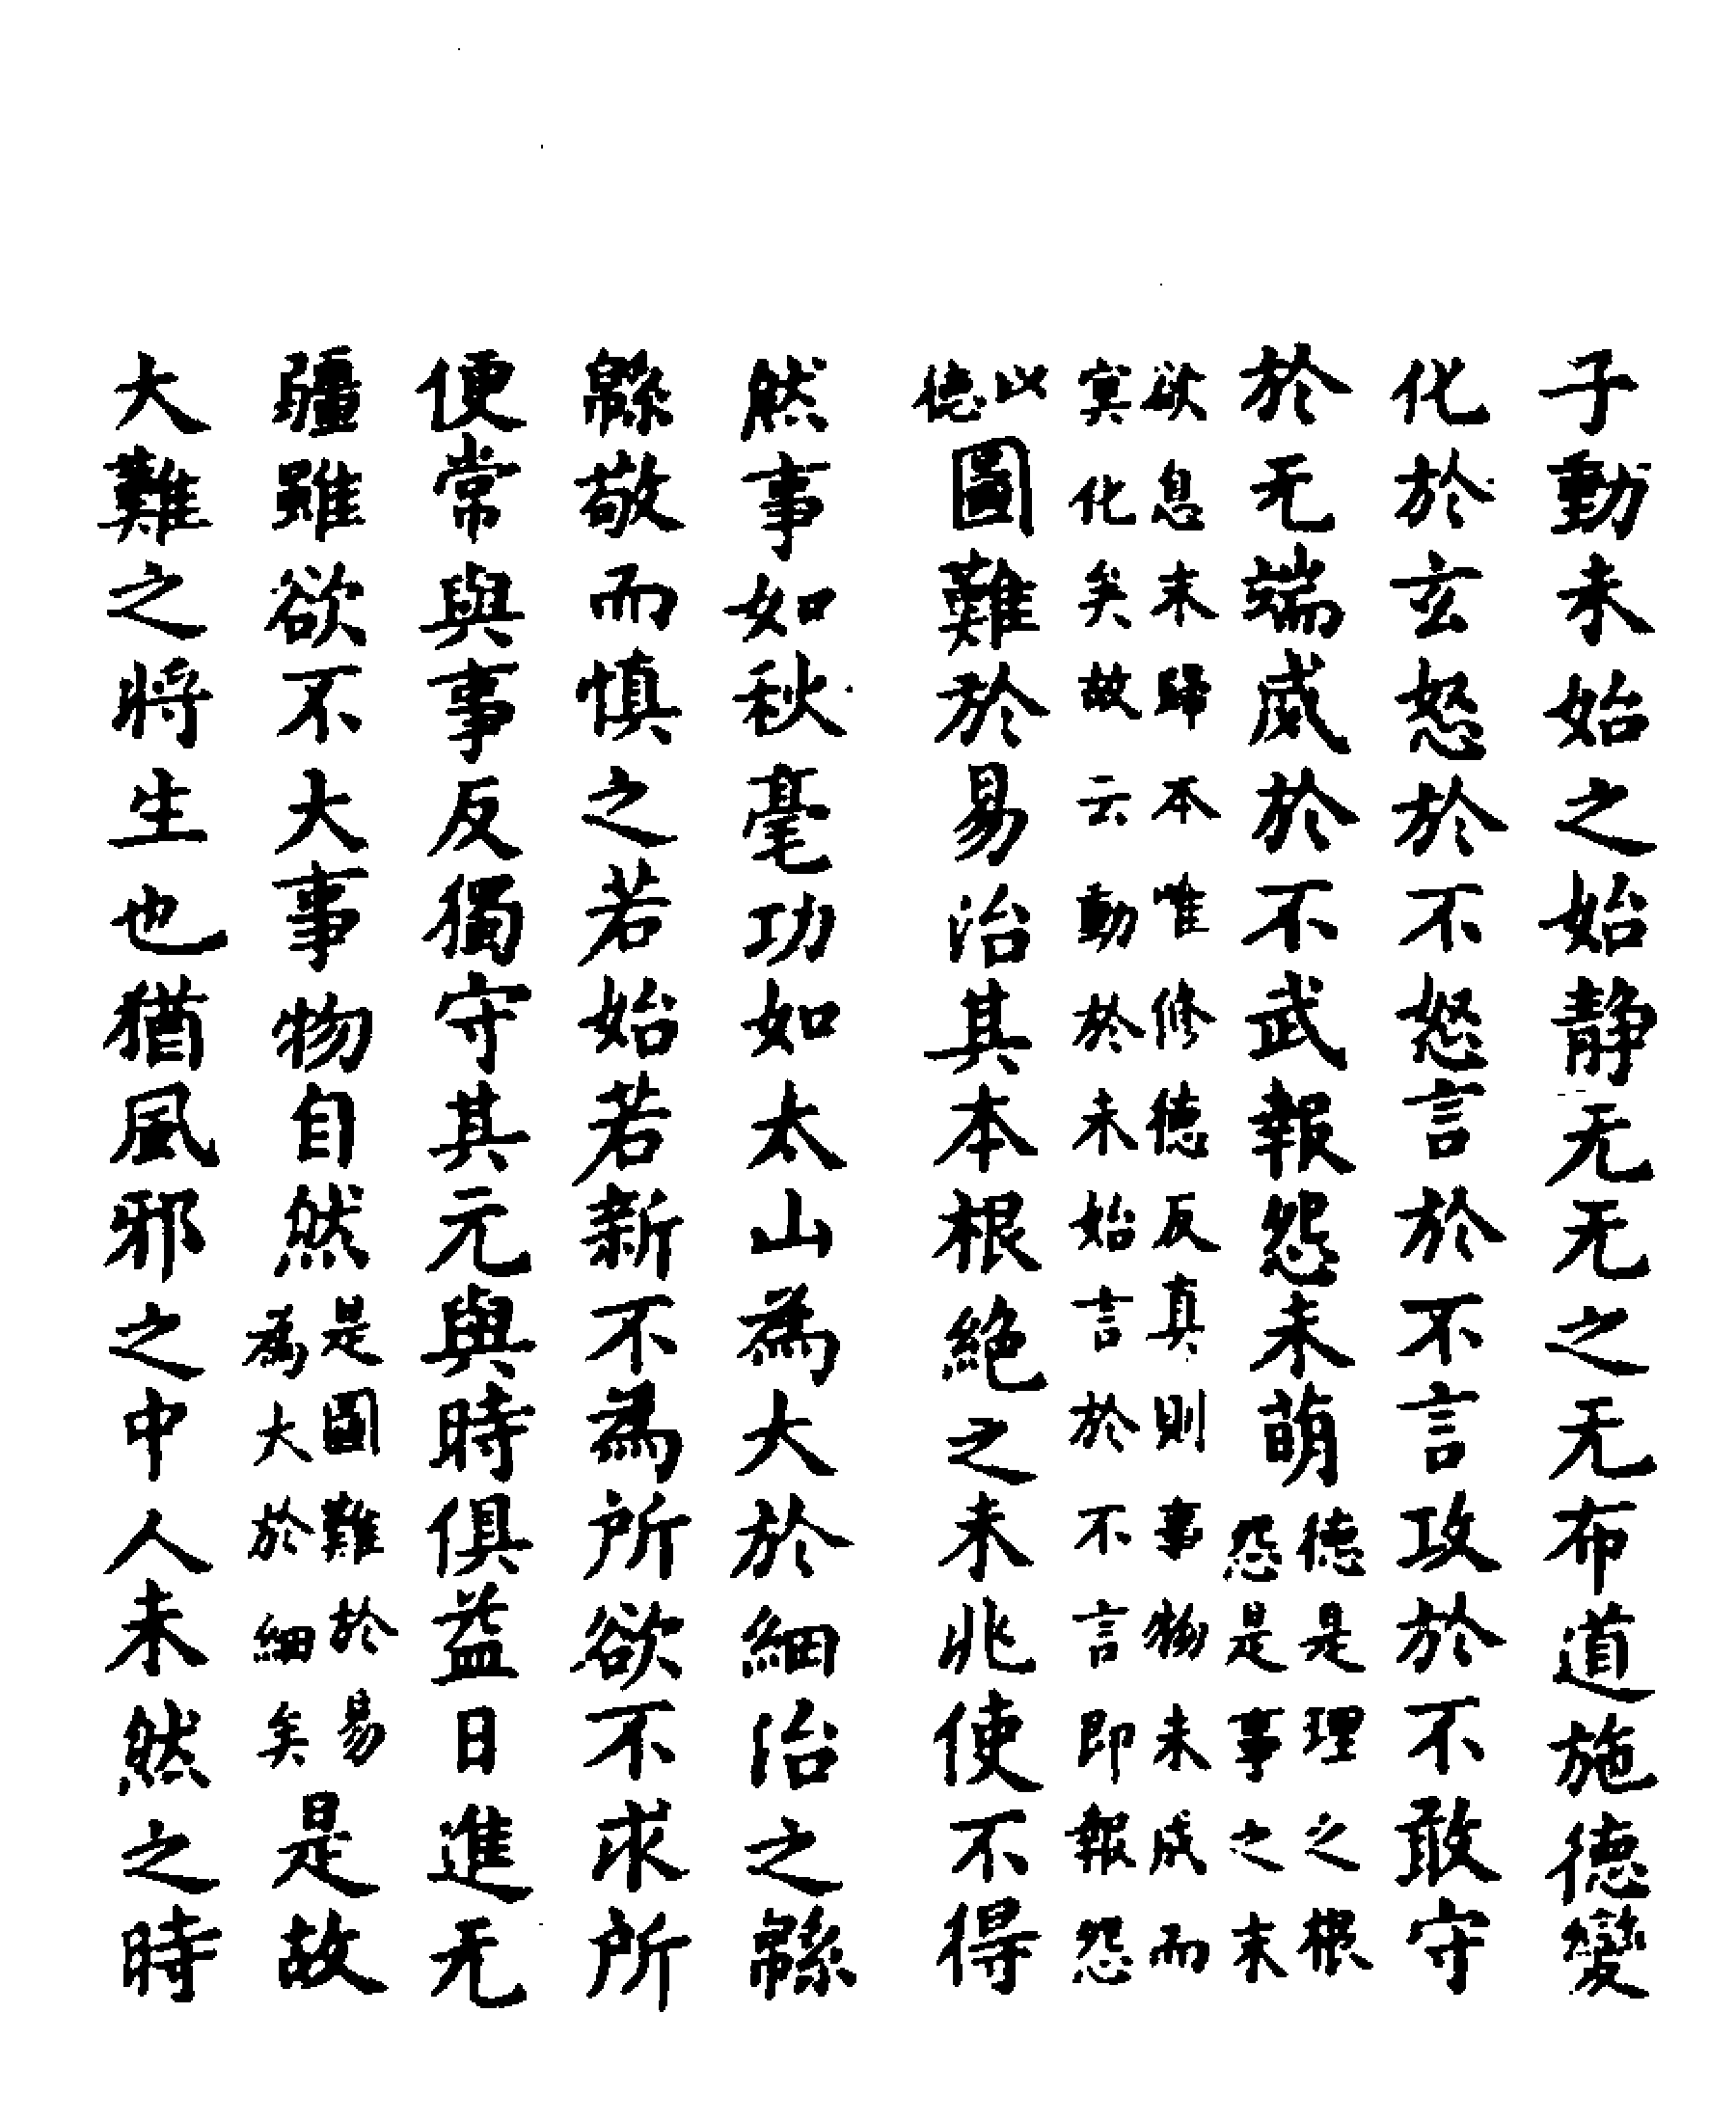 子動未始之始静无无之无布道施德變
化於玄怒於不怒言於不言攻於不敢守
於无端威於不武報怨未萌德是理之根怨是事之末
欲息末歸本唯修德反真則事物未成而冥化矣故云動於未始言於不言即報怨
以德圖難於易治其本根絶之未兆使不得
然事如秋毫功如太山為大於細治之緜
緜敬而慎之若始若新不為所欲不求所
便常與事反獨守其元與時俱益日進无
疆雖欲不大事物自然是圖難於易為大於細矣是故
大難之将生也猶風邪之中人未然之時